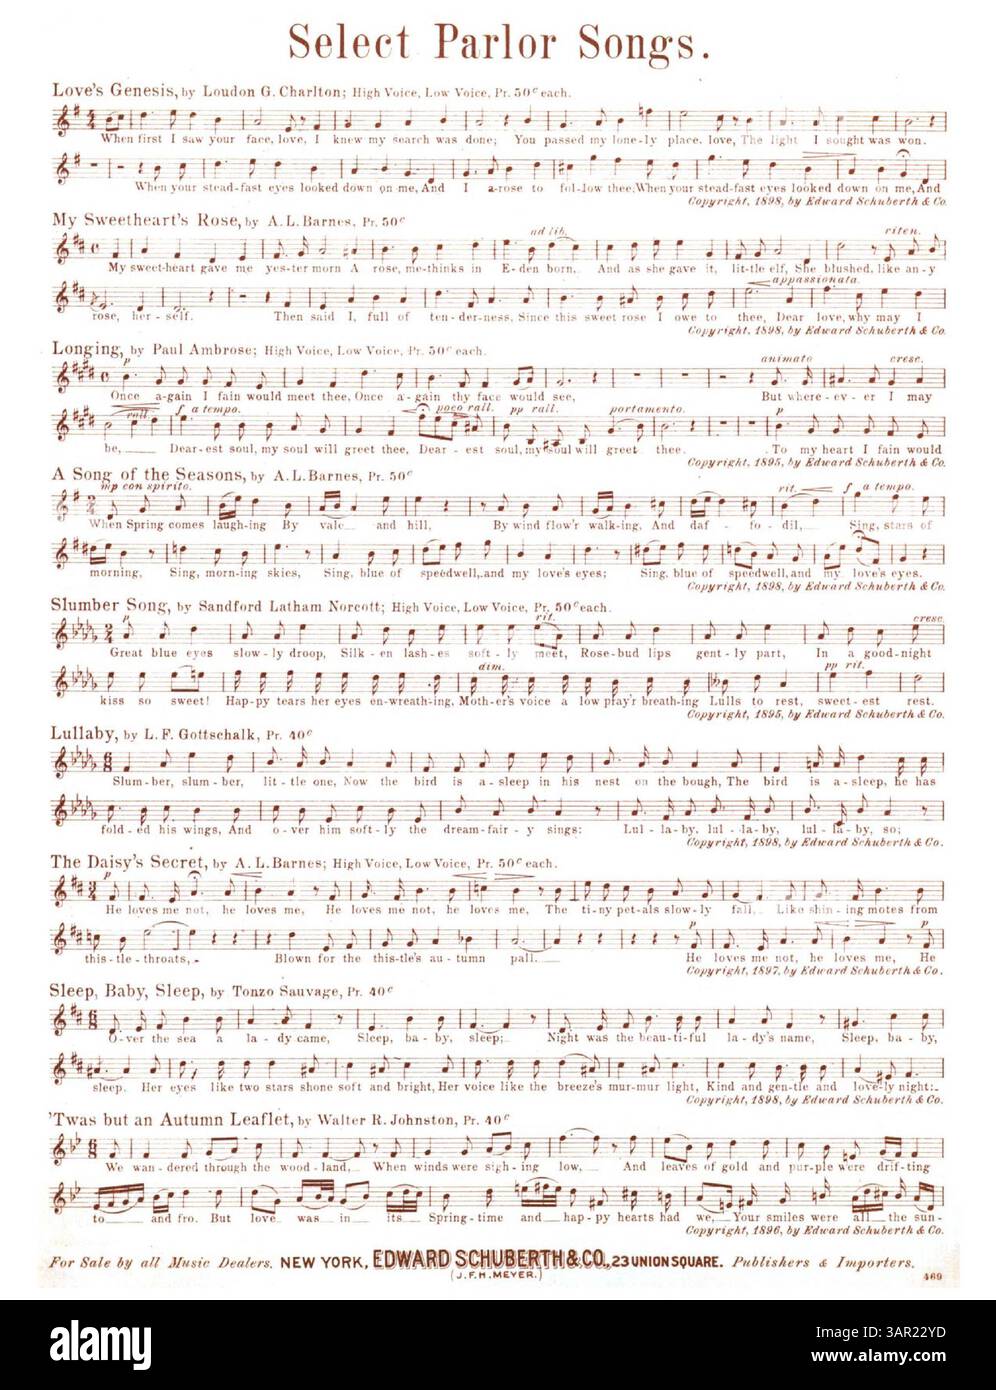 Select Parlor Songs.
Love's Genesis, by Loudon G. Charlton; High Voice, Low Voice, Pr. 50c each.
When first I saw your face, love, I knew my search was done; You passed my lone-ly place, love, The light I sought was won.
When your stead-fast eyes looked down on me, And I a-rose to fol-low thee; When your stead-fast eyes looked down on me, And
Copyright, 1898, by Edward Schuberth & Co.
My Sweetheart's Rose, by A. L. Barnes, Pr. 50c
ad lib. riten.
My sweet-heart gave me yes-ter morn A rose, me-thinks in E-den born, And as she gave it, lit-tle elf, She blushed, like an-y
appassionata.
rose, her-self. Then said I, full of ten-der-ness, Since this sweet rose I owe to thee, Dear love, why may I
Copyright, 1898, by Edward Schuberth & Co.
Longing, by Paul Ambrose; High Voice, Low Voice, Pr. 50c each.
p animato cresc.
Once a-gain I fain would meet thee, Once a-gain thy face would see, But where-ev-er I may
rall. f a tempo. poco rall. pp rall. portamento. p
be, Dear-est soul, my soul will greet thee, Dear-est soul, my soul will greet thee. To my heart I fain would
Copyright, 1895, by Edward Schuberth & Co.
A Song of the Seasons, by A. L. Barnes, Pr. 50c
mp con spirito. rit. f a tempo.
When Spring comes laugh-ing By vale and hill, By wind flow'r walk-ing, And daf-fo-dil, Sing, stars of
morning, Sing, morn-ing skies, Sing, blue of speedwell, and my love's eyes; Sing, blue of speedwell, and my love's eyes.
Copyright, 1898, by Edward Schuberth & Co.
Slumber Song, by Sandford Latham Norcott; High Voice, Low Voice, Pr. 50c each.
p rit. cresc.
Great blue eyes slow-ly droop, Silk-en lash-es soft-ly meet, Rose-bud lips gent-ly part, In a good-night
dim. pp rit.
kiss so sweet! Hap-py tears her eyes en-wreath-ing, Moth-er's voice a low pray'r breath-ing Lulls to rest, sweet-est rest.
Copyright, 1895, by Edward Schuberth & Co.
Lullaby, by L. F. Gottschalk, Pr. 40c
Slum-ber, slum-ber, lit-tle one, Now the bird is a-sleep in his nest on the bough, The bird is a-sleep, he has
fold-ed his wings, And o-ver him soft-ly the dream-fair-y sings: Lul-la-by, lul-la-by, lul-la-by, so;
Copyright, 1898, by Edward Schuberth & Co.
The Daisy's Secret, by A. L. Barnes; High Voice, Low Voice, Pr. 50c each.
p
He loves me not, he loves me, He loves me not, he loves me, The ti-ny pet-als slow-ly fall, Like shin-ing motes from
p p
this-tle-throats, Blown for the this-tle's au-tumn pall. He loves me not, he loves me, He
Copyright, 1897, by Edward Schuberth & Co.
Sleep, Baby, Sleep, by Tonzo Sauvage, Pr. 40c
O-ver the sea a la-dy came, Sleep, ba-by, sleep; Night was the beau-ti-ful la-dy's name, Sleep, ba-by,
sleep. Her eyes like two stars shone soft and bright, Her voice like the breeze's mur-mur light, Kind and gen-tle and love-ly night:
Copyright, 1898, by Edward Schuberth & Co.
'Twas but an Autumn Leaflet, by Walter R. Johnston, Pr. 40c
We wan-dered through the wood-land, When winds were sigh-ing low, And leaves of gold and pur-ple were drif-ting
to and fro. But love was in its Spring-time and hap-py hearts had we, Your smiles were all the sun-
Copyright, 1896, by Edward Schuberth & Co.
For Sale by all Music Dealers. NEW YORK, EDWARD SCHUBERTH & CO., 23 UNION SQUARE. Publishers & Importers.
(J.F.H. MEYER.)
469
alamy
Image ID: 3AR22YD
www.alamy.com